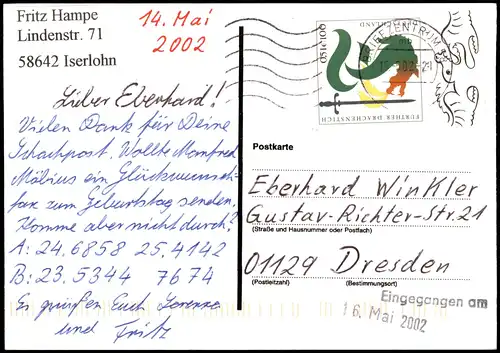 Fritz Hampe
Lindenstr. 71
58642 Iserlohn
14. Mai
2002
Lieber Eberhard!
Vielen Dank für Deine
Schachpost. Wollte Manfred
Möbius ein Glückwunsch-
fax zum Geburtstag senden.
Komme aber nicht durch?
A: 24.6858 25.4142
B: 23.5344 7674
Es grüßen Euch
und Fritz
DEUTSCHLAND
0,51€ 1,00
FURTHER DRACHENSTICH
BRIEFZENTRUM
Postkarte
Eberhard Winkler
Gustav-Richter-Str. 21
(Straße und Hausnummer oder Postfach)
01129 Dresden
(Postleitzahl) (Bestimmungsort)
Eingegangen am
16. Mai 2002